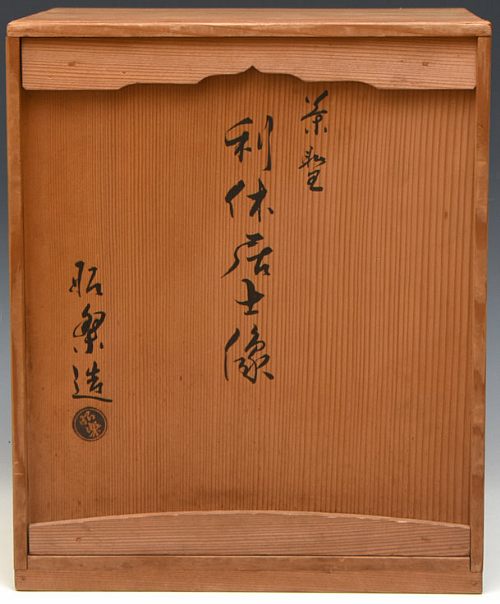 茶聖
利休居士像
昭楽造
昭楽